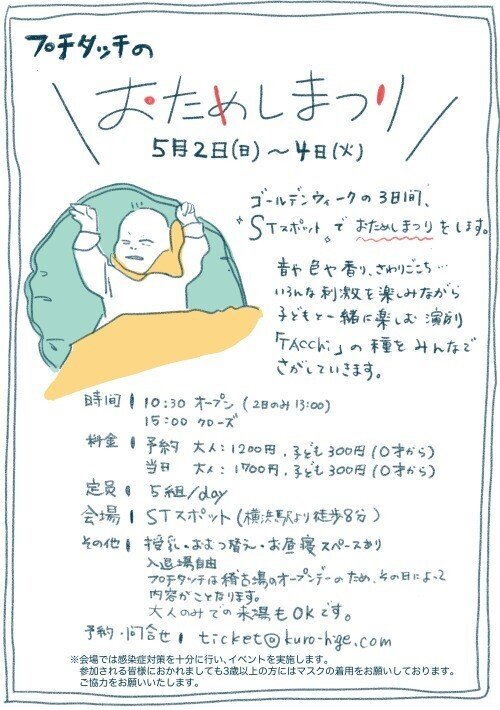 プチタッチの
おためしまつり
5月2日(日)〜4日(火)
ゴールデンウィークの3日間、
STスポットでおためしまつりをします。
音や色や香り、さわりごこち…
いろんな刺激を楽しみながら
子どもと一緒に楽しむ演劇
「TAcchi」の種をみんなで
さがしていきます。
時間 10:30 オープン (2日のみ13:00)
15:00 クローズ
料金 予約 大人:1200円、子ども300円(0才から)
当日 大人:1700円、子ども300円(0才から)
定員 5組/day
会場 STスポット(横浜駅より徒歩8分)
その他 授乳・おむつ替え・お昼寝スペースあり
入退場自由
プチタッチは稽古場のオープンデーのため、その日によって
内容がことなります。
大人のみでの来場もOKです。
予約・問合せ ticket@kuro-hige.com
※会場では感染症対策を十分に行い、イベントを実施します。
参加される皆様におかれましても3歳以上の方にはマスクの着用をお願いしております。
ご協力をお願いいたします。